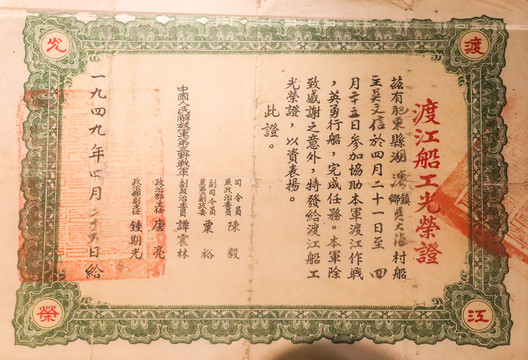 渡江
光榮
渡江船工光榮證
茲有肥東縣湖濱鄉 村船
主吳文信於四月二十一日至四
月二十五日參加協助本軍渡江作戰
，英勇行船，完成任務。本軍除
致感謝之意外，特發給渡江船工
光榮證，以資表揚。
此證。
司令員兼政治委員 陳毅
副司令員兼第二副政委 粟裕
副政治委員 譚震林
中國人民解放軍第三野戰軍
政治部主任 唐亮
政治部副主任 鍾期光
一九四九年四月二十五日給